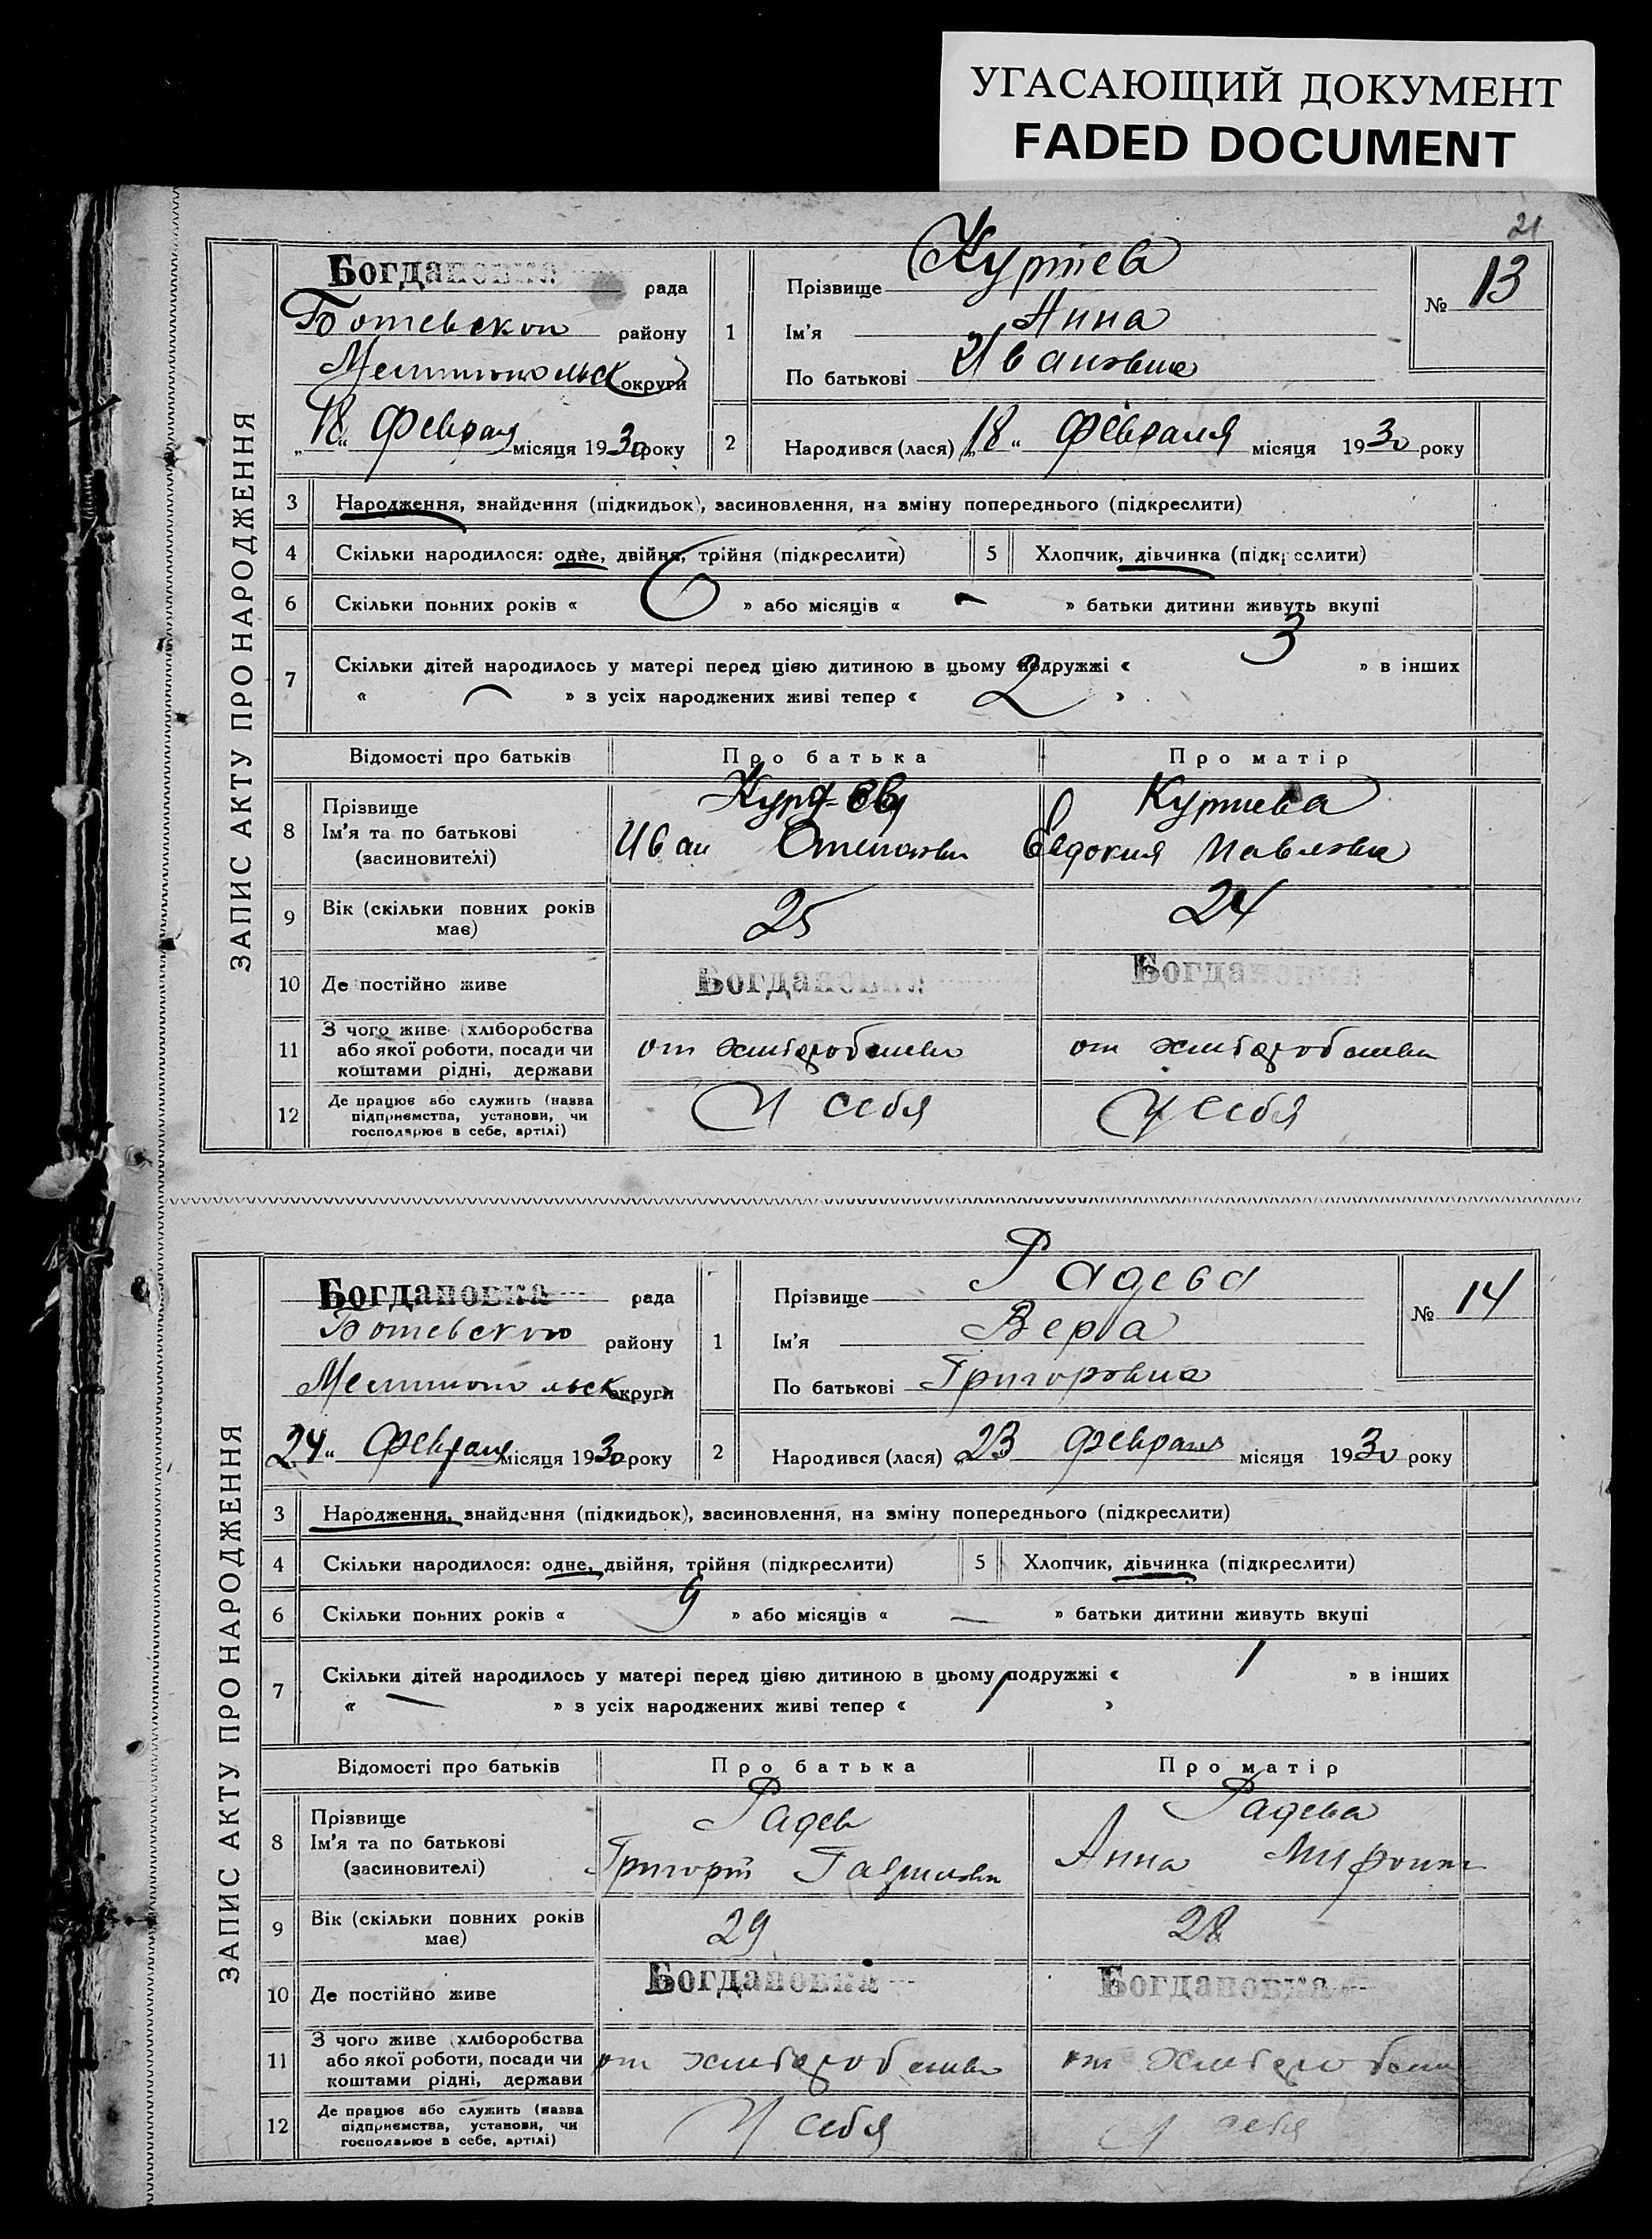 УГАСАЮЩИЙ ДОКУМЕНТ
FADED DOCUMENT
21
ЗАПИС АКТУ ПРО НАРОДЖЕННЯ
Богдановка рада
Ботевского району
Мелитопольск округи
„18“ Февраля місяця 1930 року
1
Прізвище Куртева
Ім'я Анна
По батькові Ивановна
№ 13
2 Народився (лася) „18“ Февраля місяця 1930 року
3 Народження, знайдення (підкидьок), засиновлення, на зміну попереднього (підкреслити)
4 Скільки народилося: одне, двійня, трійня (підкреслити) 5 Хлопчик, дівчинка (підкреслити)
6 Скільки повних років « 6 » або місяців « – » батьки дитини живуть вкупі
7 Скільки дітей народилось у матері перед цією дитиною в цьому подружжі « 3 » в інших
« – » з усіх народжених живі тепер « 2 »
Відомості про батьків Про батька Про матір
8 Прізвище
Ім'я та по батькові
(засиновителі)
Куртева
Иван Степанови Евдокия Павловна
9 Вік (скільки повних років має) 25 24
10 Де постійно живе Богдановка Богдановка
11 З чого живе (хліборобства
або якої роботи, посади чи
коштами рідні, держави
от хлиборобства от хлиборобства
12 Де працює або служить (назва
підприємства, установи, чи
господарює в себе, артілі)
У себя У себя
ЗАПИС АКТУ ПРО НАРОДЖЕННЯ
Богдановка рада
Ботевского району
Мелитопольск округи
„24“ Февраля місяця 1930 року
1
Прізвище Радева
Ім'я Вера
По батькові Григоровна
№ 14
2 Народився (лася) „23 февраля місяця 1930 року
3 Народження, знайдення (підкидьок), засиновлення, на зміну попереднього (підкреслити)
4 Скільки народилося: одне, двійня, трійня (підкреслити) 5 Хлопчик, дівчинка (підкреслити)
6 Скільки повних років « 9 » або місяців « — » батьки дитини живуть вкупі
7 Скільки дітей народилось у матері перед цією дитиною в цьому подружжі « 1 » в інших
« — » з усіх народжених живі тепер « 1 »
Відомості про батьків Про батька Про матір
8 Прізвище
Ім'я та по батькові
(засиновителі)
Радев Радева
Григорій Анна Мифовна
9 Вік (скільки повних років має) 29 28
10 Де постійно живе Богдановка Богдановка
11 З чого живе (хліборобства
або якої роботи, посади чи
коштами рідні, держави
от хлиборобства от хлиборобств
12 Де працює або служить (назва
підприємства, установи, чи
господарює в себе, артілі)
У себя У себя